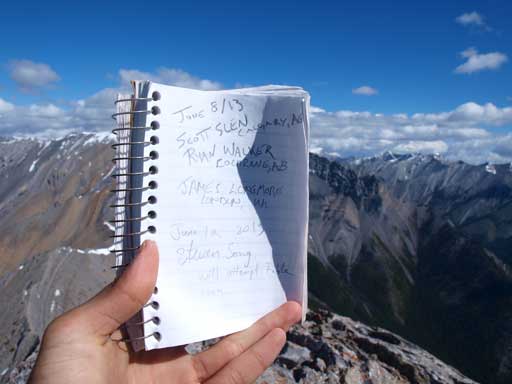 June 8/13
SCOTT SLEN
CALGARY, AB
RYAN WALKER
COCHRANE, AB
JAMES
LONDON,
June 2013
Steven Song
will attempt